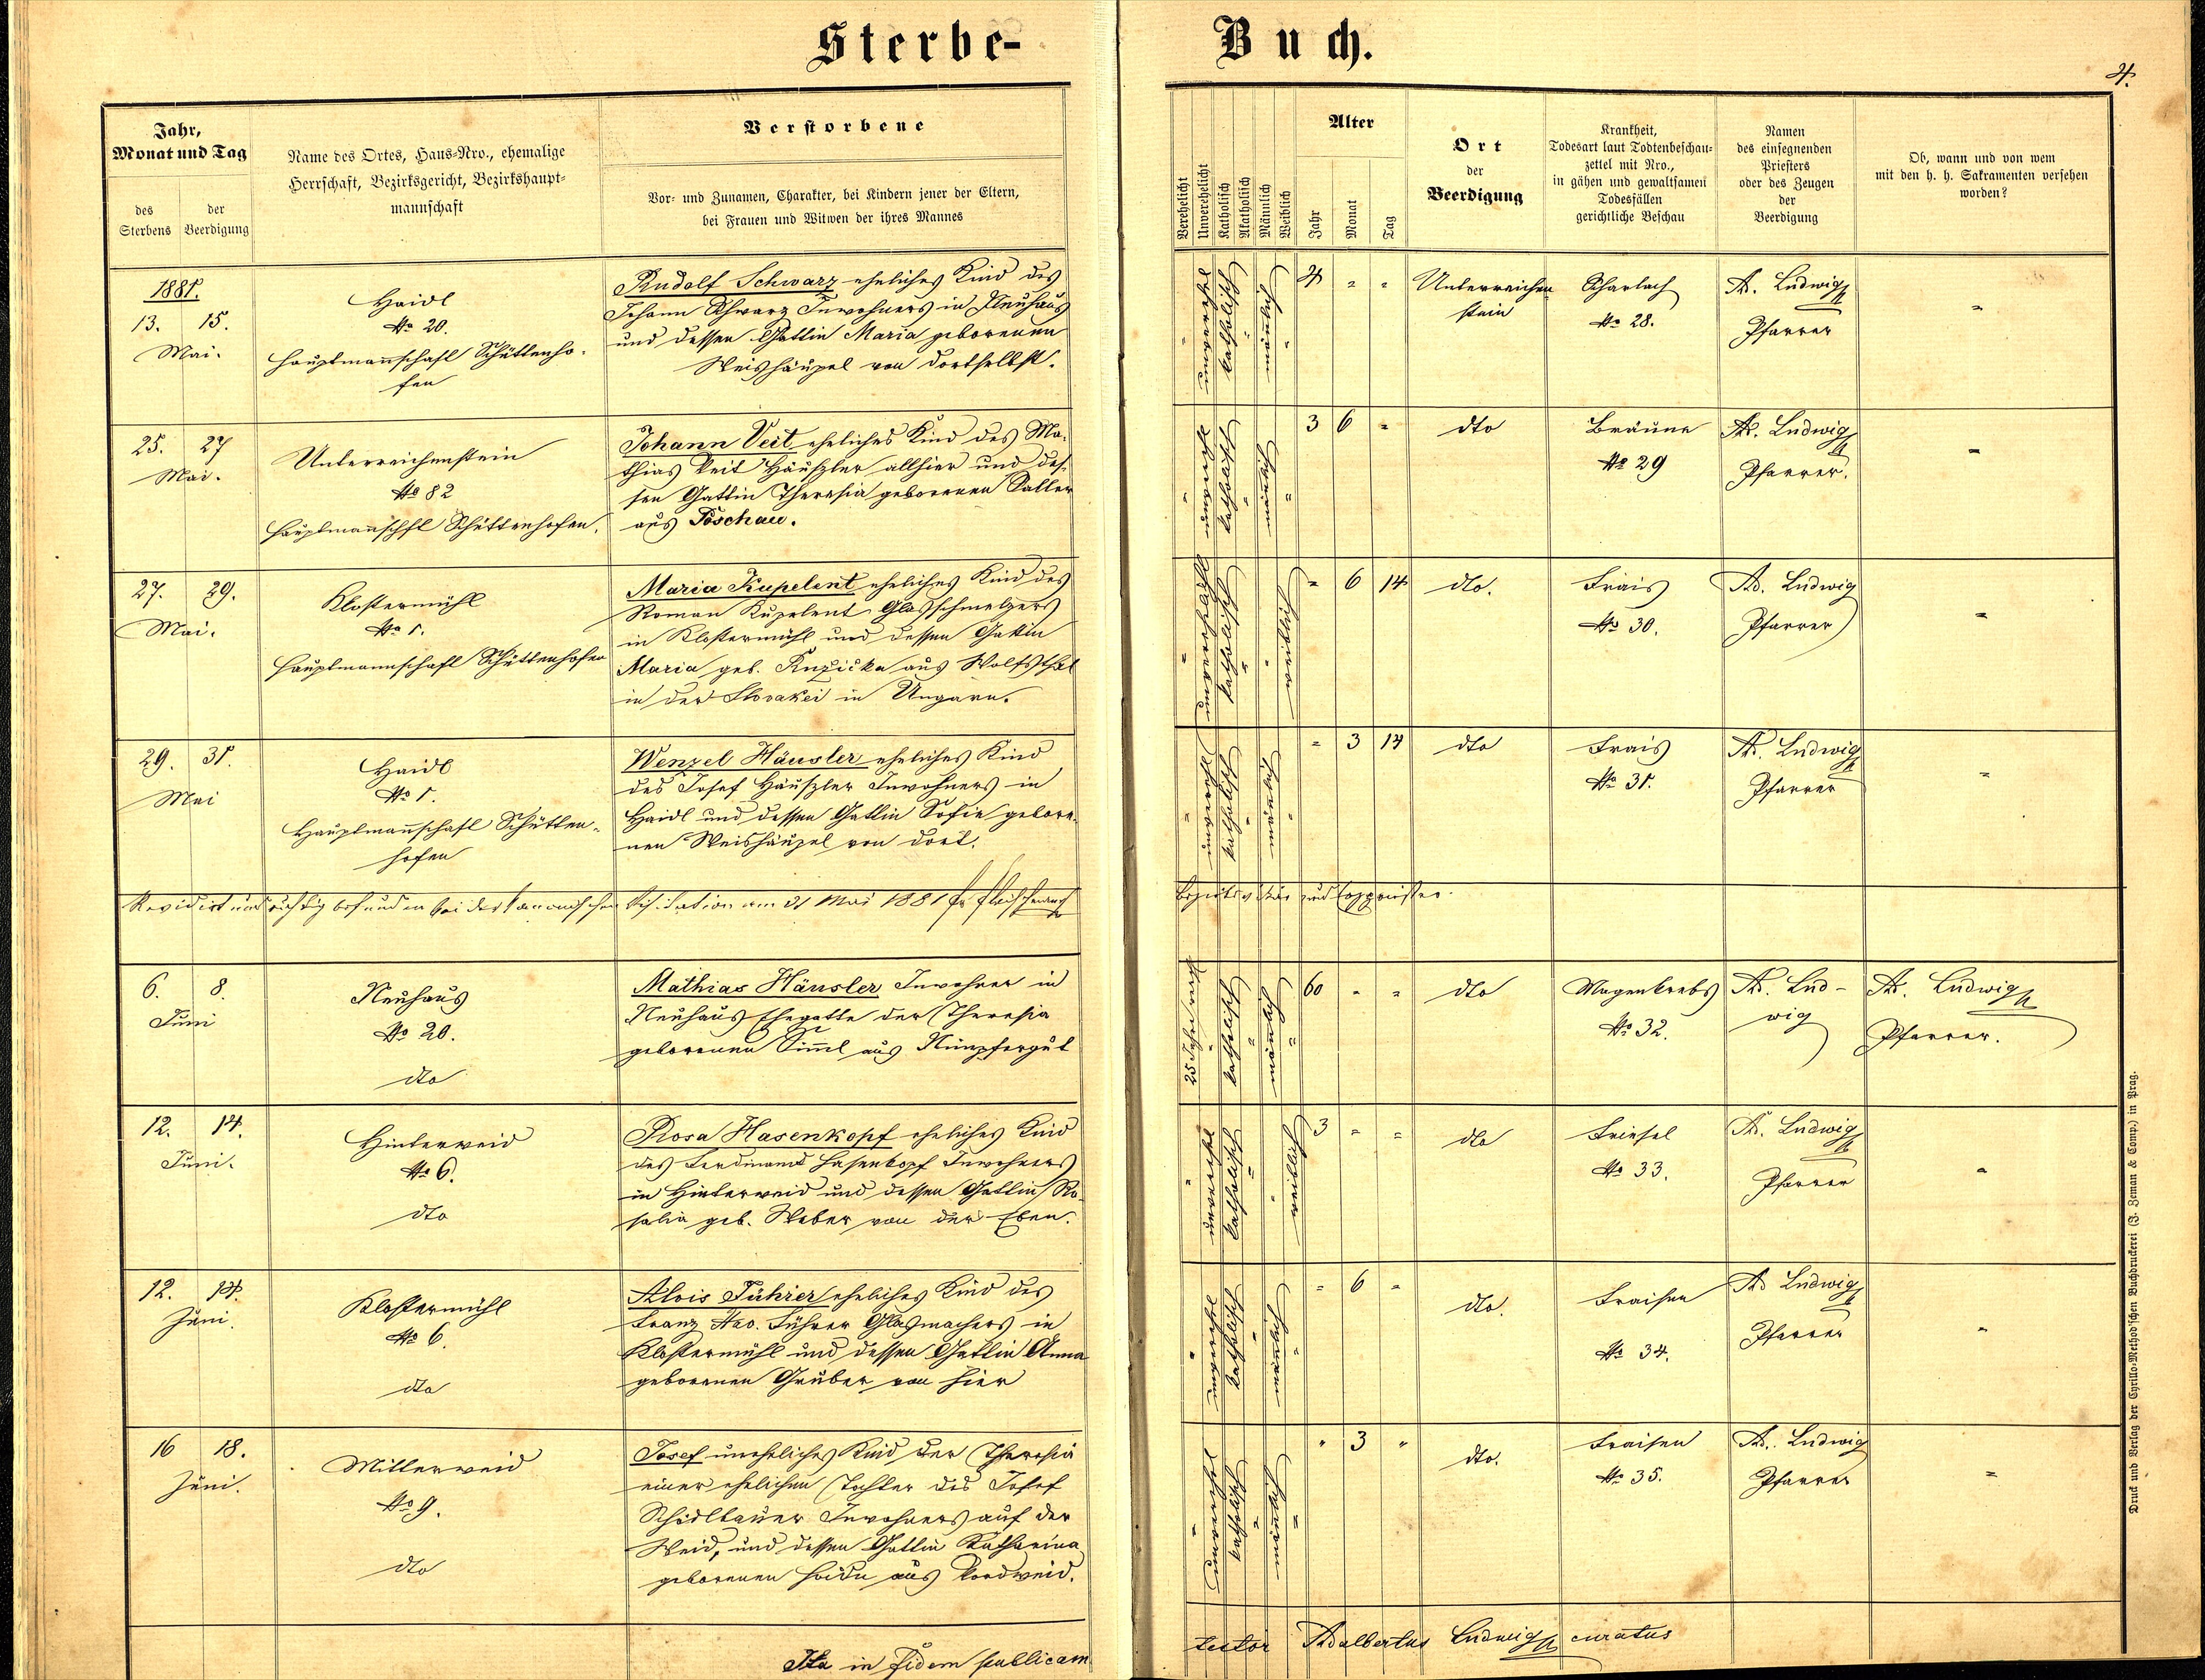 Sterbe-
Buch.
4.
Jahr,
Monat und Tag
des
Sterbens
der
Beerdigung
Name des Ortes, Haus-Nro., ehemalige
Herrschaft, Bezirksgericht, Bezirkshaupt-
mannschaft
Verstorbene
Vor- und Zunamen, Charakter, bei Kindern jener der Eltern,
bei Frauen und Witwen der ihres Mannes
Verehelicht
Unverehelicht
Katholisch
Akatholisch
Männlich
Weiblich
Alter
Jahr
Monat
Tag
Ort
der
Beerdigung
Krankheit,
Todesart laut Todtenbeschau-
zettel mit Nro.,
in gähen und gewaltsamen
Todesfällen
gerichtliche Beschau
Namen
des einsegnenden
Priesters
oder des Zeugen
der
Beerdigung
Ob, wann und von wem
mit den h. h. Sakramenten versehen
worden?
1881.
13. 15.
Mai.
Haidl
No 20.
Hauptmannschaft Schüttenho-
fen
Rudolf Schwarz eheliches Kind des
Johann Schwarz Inwohners in Neuhaus
und dessen Gattin Maria geborenen
Weishäupel von dortselbst.
katholisch
männlich
4 " "
Unterreichen
stein
Scharlach
No 28.
Ad. Ludwig
Pfarrer
"
25. 27
Mai.
Unterreichenstein
No 82
Hauptmannschft Schüttenhofen.
Johann Veit eheliches Kind des Ma-
thias Veit Häusler allhier und des-
sen Gattin Theresia geborenen Saller
aus Pöschau.
katholisch
3 6 "
dto
Bräune
No 29
Ad. Ludwig
Pfarrer.
"
27. 29.
Mai.
Klostermühl
No 1.
Hauptmannschaft Schüttenhofen
Maria Kupelent eheliches Kind des
Roman Kupelent Glasschmelzers
in Klostermühl und dessen Gattin
Maria geb. Ružička aus Wolfsthal
in der Slovakei in Ungarn.
katholisch
weiblich
" 6 14
dto.
Frais
No 30.
Ad. Ludwig
Pfarrer
"
29. 31.
Mai
Haidl
No 1.
Hauptmannschaft Schütten-
hofen
Wenzel Häusler eheliches Kind
des Josef Häusler Inwohners in
Haidl und dessen Gattin Sofie gebore-
nen Weishäupel von dort.
katholisch
männlich
" 3 14
dto
Frais
No 31.
Ad. Ludwig
Pfarrer
"
Revidirt und richtig befunden bei der kanonischen Visitation am 31 Mai 1881
Bezirksvikär und
6. 8.
Juni
Neuhaus
No 20.
dto
Mathias Häusler Inwohner in
Neuhaus Ehegatte der Theresia
geborenen Simml aus
25 Jahre
katholisch
männlich
60 " "
dto
Magenkrebs
No 32.
Ad. Lud-
wig
Ad. Ludwig
Pfarrer.
12. 14.
Juni.
Hinterweid
No 6.
dto
Rosa Hasenkopf eheliches Kind
des Ferdinand Hasenkopf Inwohners
in Hinterweid und dessen Gattin Ro-
salia geb. Weber von der Eben.
katholisch
weiblich
3 " "
dto
Friesel
No 33.
Ad. Ludwig
Pfarrer
"
12. 14.
Juni.
Klostermühl
No 6.
dto
Alois Führer eheliches Kind des
Franz Führer Glasmachers in
Klostermühl und dessen Gattin Anna
geborenen Gruber von hier
katholisch
männlich
" 6 "
dto.
Fraisen
No 34.
Ad Ludwig
Pfarrer
"
16 18.
Juni.
Mitterweid
No 9.
dto
Josef uneheliches Kind der Theresia
einer ehelichen Tochter des Josef
Schidlbauer Inwohners auf der
Weid, und dessen Gattin Katharina
geborenen aus Vordweid.
katholisch
männlich
" 3 "
dto.
Fraisen
No 35.
Ad. Ludwig
Pfarrer
"
Ita in fidem publicam
testor Adalbertus Ludwig curatus
Druck und Verlag der Cyrillo-Method'schen Buchdruckerei (J. Zeman & Comp.) in Prag.